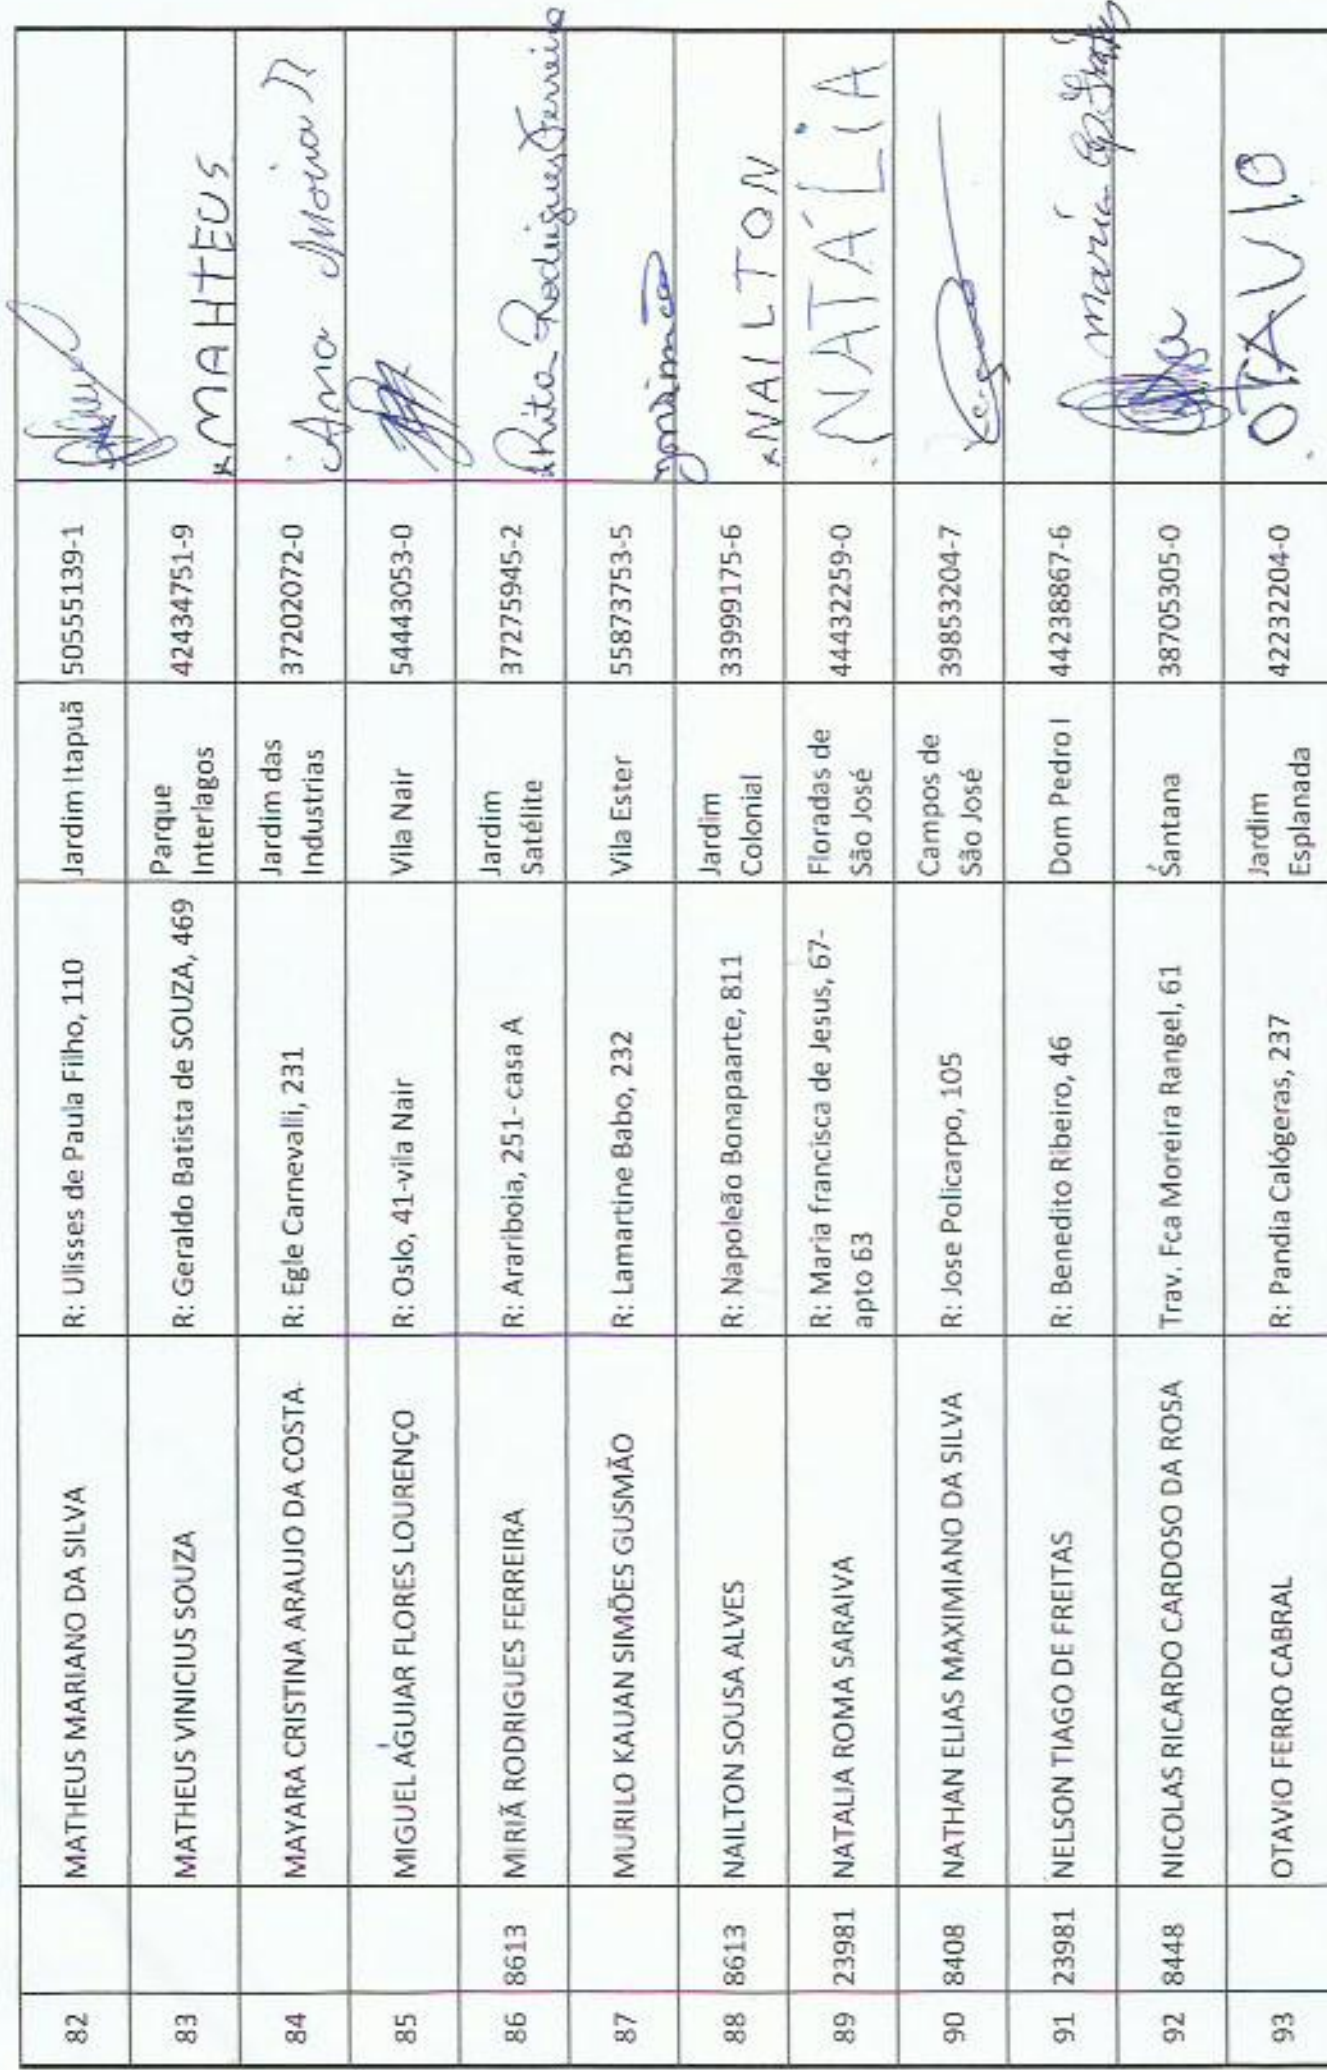 82 MATHEUS MARIANO DA SILVA R: Ulisses de Paula Filho, 110 Jardim Itapuã 50555139-1
83 MATHEUS VINICIUS SOUZA R: Geraldo Batista de SOUZA, 469 Parque
Interlagos 42434751-9 MAHTEUS
84 MAYARA CRISTINA ARAUJO DA COSTA R: Egle Carnevalli, 231 Jardim das
Industrias 37202072-0 Ana Moira
85 MIGUEL AGUIAR FLORES LOURENÇO R: Oslo, 41-vila Nair Vila Nair 54443053-0
86 8613 MIRIÃ RODRIGUES FERREIRA R: Arariboia, 251- casa A Jardim
Satélite 37275945-2 Rhita Rodrigues Ferreira
87 MURILO KAUAN SIMÕES GUSMÃO R: Lamartine Babo, 232 Vila Ester 55873753-5
88 8613 NAILTON SOUSA ALVES R: Napoleão Bonapaarte, 811 Jardim
Colonial 33999175-6 NAILTON
89 23981 NATALIA ROMA SARAIVA R: Maria francisca de Jesus, 67-
apto 63 Floradas de
São José 44432259-0 NATÁLiA
90 8408 NATHAN ELIAS MAXIMIANO DA SILVA R: Jose Policarpo, 105 Campos de
São José 39853204-7
91 23981 NELSON TIAGO DE FREITAS R: Benedito Ribeiro, 46 Dom Pedro I 44238867-6 Maria
92 8448 NICOLAS RICARDO CARDOSO DA ROSA Trav. Fca Moreira Rangel, 61 Santana 38705305-0
93 OTAVIO FERRO CABRAL R: Pandia Calógeras, 237 Jardim
Esplanada 42232204-0 OTAVIO